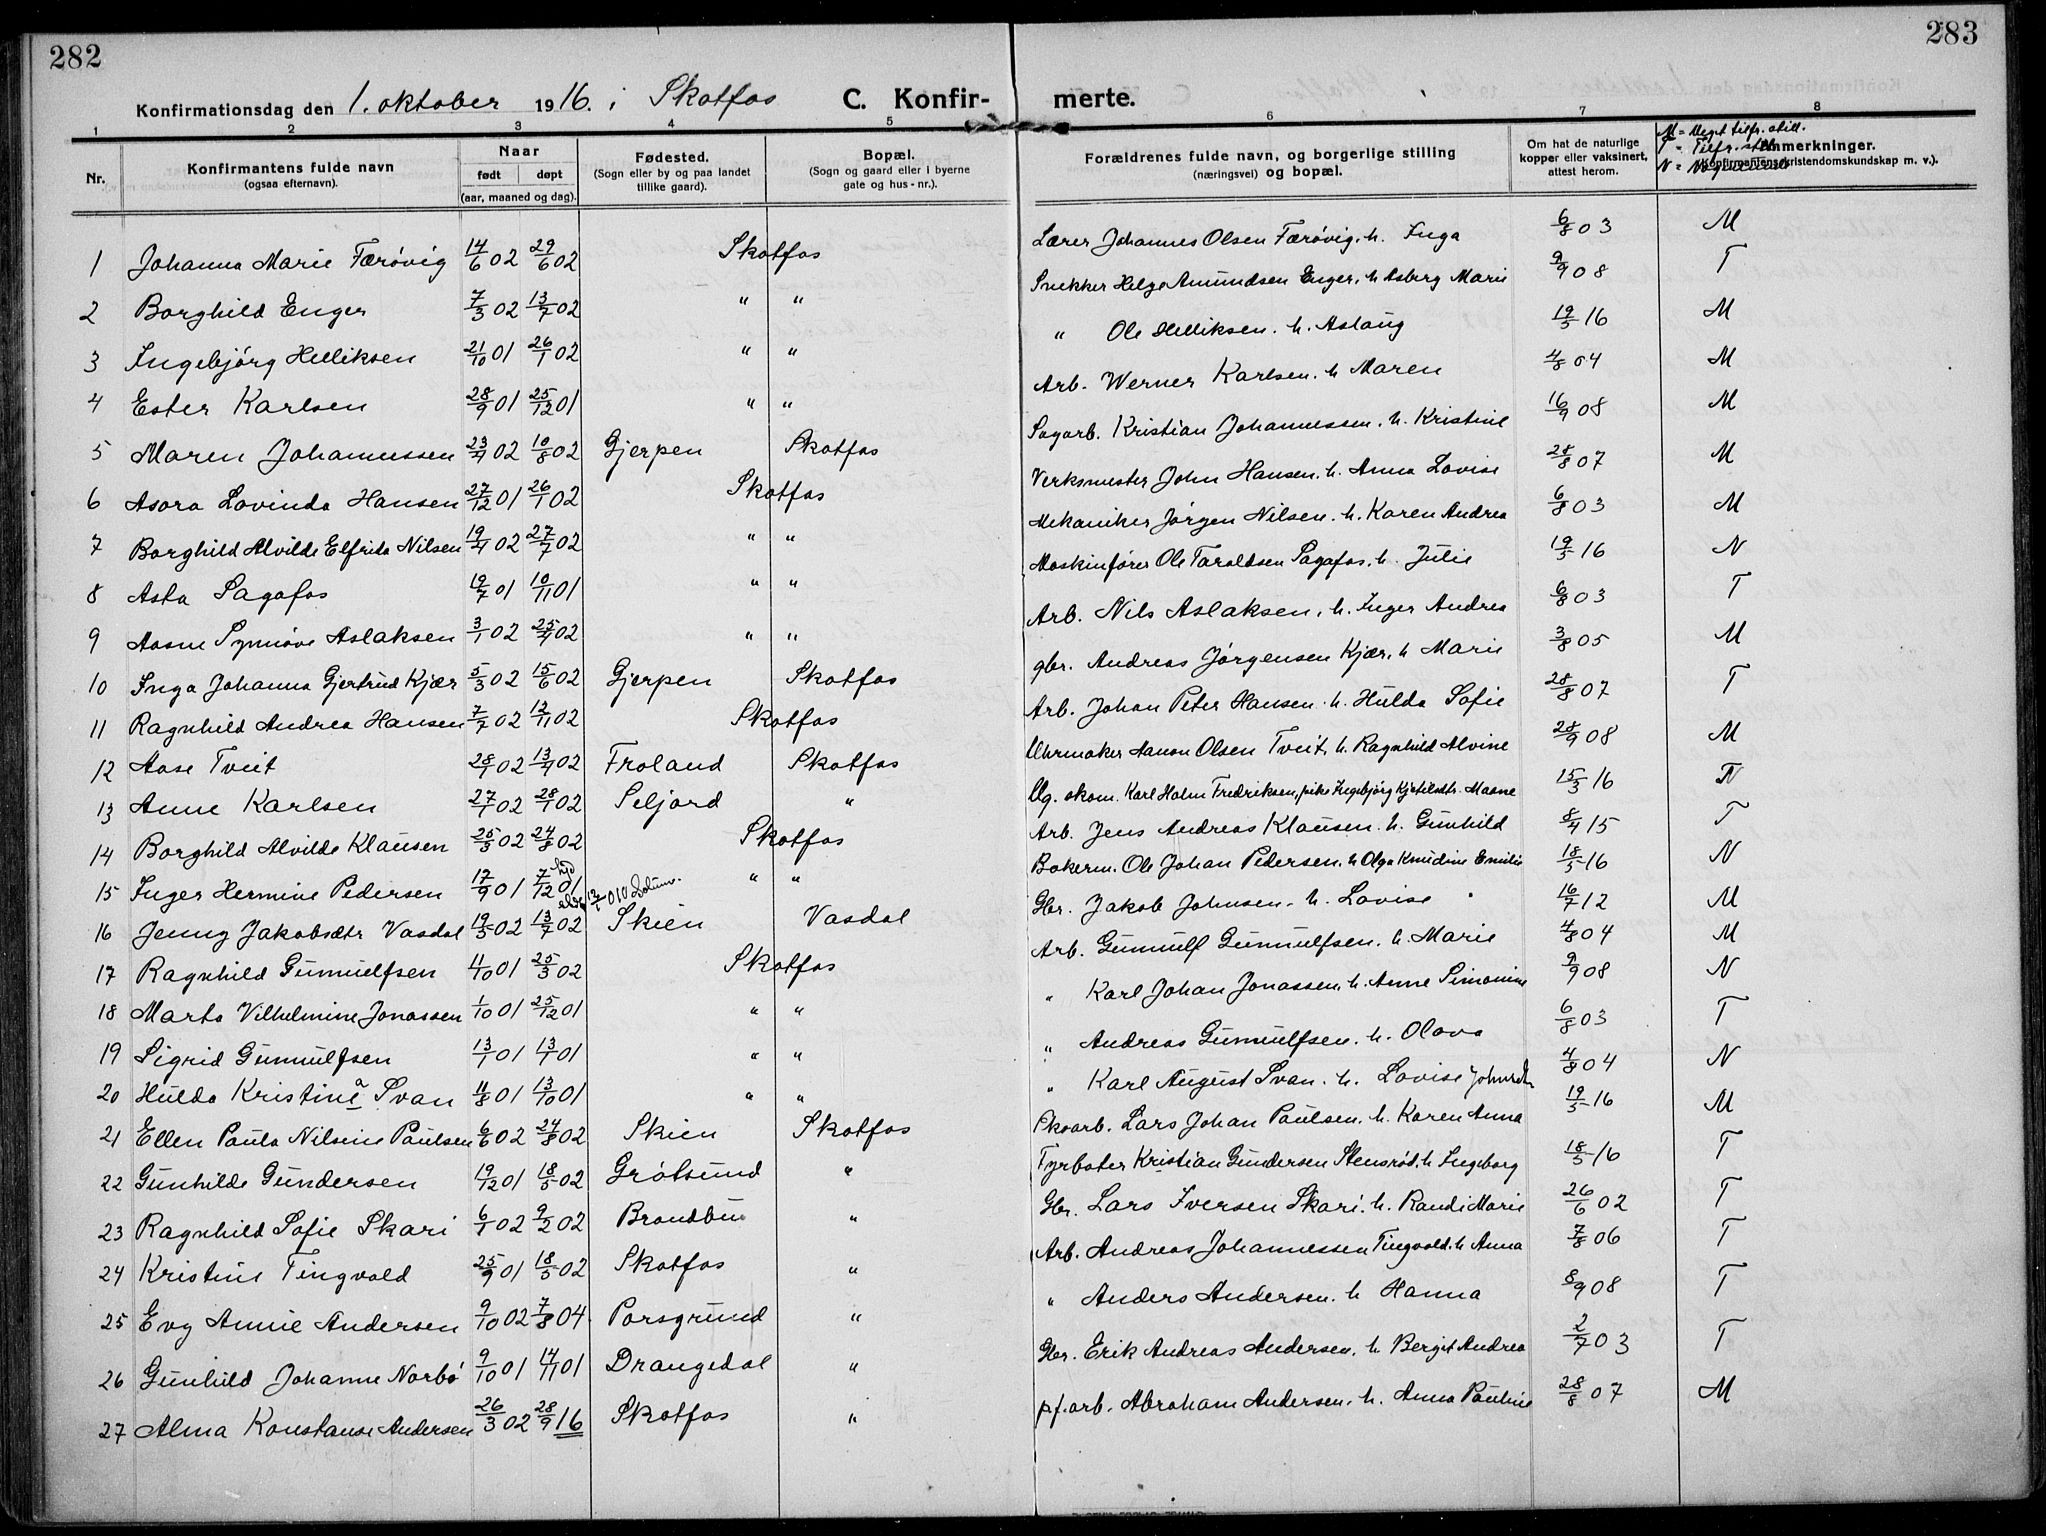 282
283
Konfirmationsdag den 1. oktober 1916. i Skotfos C. Konfir- merte.
1 2 3 4 5 6 7 8
Nr.
Konfirmantens fulde navn
(ogsaa efternavn).
Naar
født døpt
(aar, maaned og dag).
Fødested.
(Sogn eller by og paa landet
tillike gaard).
Bopæl.
(Sogn og gaard eller i byerne
gate og hus-nr.).
Forældrenes fulde navn, og borgerlige stilling
(næringsvei) og bopæl.
Om hat de naturlige
kopper eller vaksinert,
attest herom.
M = Meget tilfr. still.
T = Tilfr. still.
Anmerkninger.
(Konfirmantens kristendomskundskap m. v.).
1 Johanna Marie Færøvig 14/6 02 29/6 02 Skotfos Lærer Johannes Olsen Færøvig. h. Inga 6/8 03 M
2 Borghild Enger 7/3 02 13/7 02 " " Snekker Helge Amundsen Enger, h Asberg Marie 9/9 08 T
3 Ingebjørg Helliksen 21/10 01 26/1 02 " " " Ole Helliksen. h. Aslaug 19/5 16 M
4 Ester Karlsen 28/9 01 25/12 01 " " Arb. Werner Karlsen. h Maren 4/8 04 M
5 Maren Johannessen 23/4 02 10/8 02 Gjerpen Skotfos Sagarb. Kristian Johannessen. h. Kristine 16/9 08 M
6 Asora Lovinda Hansen 27/12 01 26/1 02 Skotfos Verksmester John Hansen. h. Anna Lovise 28/8 07 M
7 Borghild Alvilde Elfrida Nilsen 19/4 02 27/7 02 " " Mekaniker Jørgen Nilsen. h. Karen Andrea 6/8 03 M
8 Asta Sagafos 19/7 01 10/11 01 " " Maskinfører Ole Taraldsen Sagafos. h. Julie 19/5 16 N
9 Aasne Synnøve Aslaksen 3/1 02 25/4 02 " " Arb. Nils Aslaksen, h. Inger Andrea 6/8 03 T
10 Inga Johanna Gjertrud Kjær 5/3 02 15/6 02 Gjerpen Skotfos gbr. Andreas Jørgensen Kjær. h Marie 3/8 05 M
11 Ragnhild Andrea Hansen 7/7 02 12/11 02 Skotfos Arb. Johan Peter Hansen. h. Hulda Sofie 28/8 07 T
12 Aase Tveit 28/1 02 13/4 02 Froland Skotfos Uhrmaker Aanon Olsen Tveit, h. Ragnhild Alvine 28/9 08 M
13 Anne Karlsen 27/1 02 28/1 02 Seljord " Ug. økom. Karl Holm Fredriksen, pike Ingebjørg Kjetilsdtr. Maane 15/3 16 N
14 Borghild Alvilde Klausen 25/5 02 24/8 02 Skotfos Arb. Jens Andreas Klausen. h. Gunhild 8/4 15 T
15 Inger Hermine Pedersen 17/9 01 7/12 01 " " Bakerm. Ole Johan Pedersen. h Olga Knudine Emilie 18/5 16 N
16 Jenny Jakobsdtr Vasdal 19/5 02 13/7 02 Skien Vasdal Gbr. Jakob Johnsen. h. Lovise 16/7 12 M
17 Ragnhild Gunnulfsen 11/10 01 25/3 02 Skotfos Arb. Gunnulf Gunnulfsen. h. Marie 4/8 04 M
18 Marta Vilhelmine Jonassen 1/10 01 25/12 01 " " " Karl Johan Jonassen. h. Anne Simonine 9/9 08 N
19 Sigrid Gunnulfsen 13/1 01 13/1 01 " " " Andreas Gunnulfsen. h. Olava 6/8 03 T
20 Hulda Kristina Svan 11/8 01 13/10 01 " " " Karl August Svan. h. Lovise Johnsdtr 4/8 04 N
21 Ellen Paula Nilsine Paulsen 6/6 02 24/8 02 Skien Skotfos Skoarb. Lars Johan Paulsen. h. Karen Anna 19/5 16 M
22 Gunhilde Gundersen 19/12 01 18/5 02 Grøtsund " Fyrbøter Kristian Gundersen Stensrød. h Ingeborg 18/5 16 T
23 Ragnhild Sofie Skari 6/1 02 9/2 02 Brandbu " Gbr. Lars Iversen Skari. h. Randi Marie 26/6 02 T
24 Kristine Tingvald 25/9 01 18/5 02 Skotfos " Arb. Andreas Johannessen Tingvald. h Anna 7/8 06 T
25 Evy Annie Andersen 9/10 02 7/8 04 Porsgrund " " Anders Andersen. h Hanna 8/9 08 T
26 Gunhild Johanne Norbø 9/10 01 17/11 01 Drangedal " Gbr. Erik Andreas Andersen. h Bergit Andrea 2/7 03 T
27 Alma Konstanse Andersen 26/3 02 28/9 16 Skotfos " pf.arb. Abraham Andersen. h. Anna Pauline 28/8 07 M